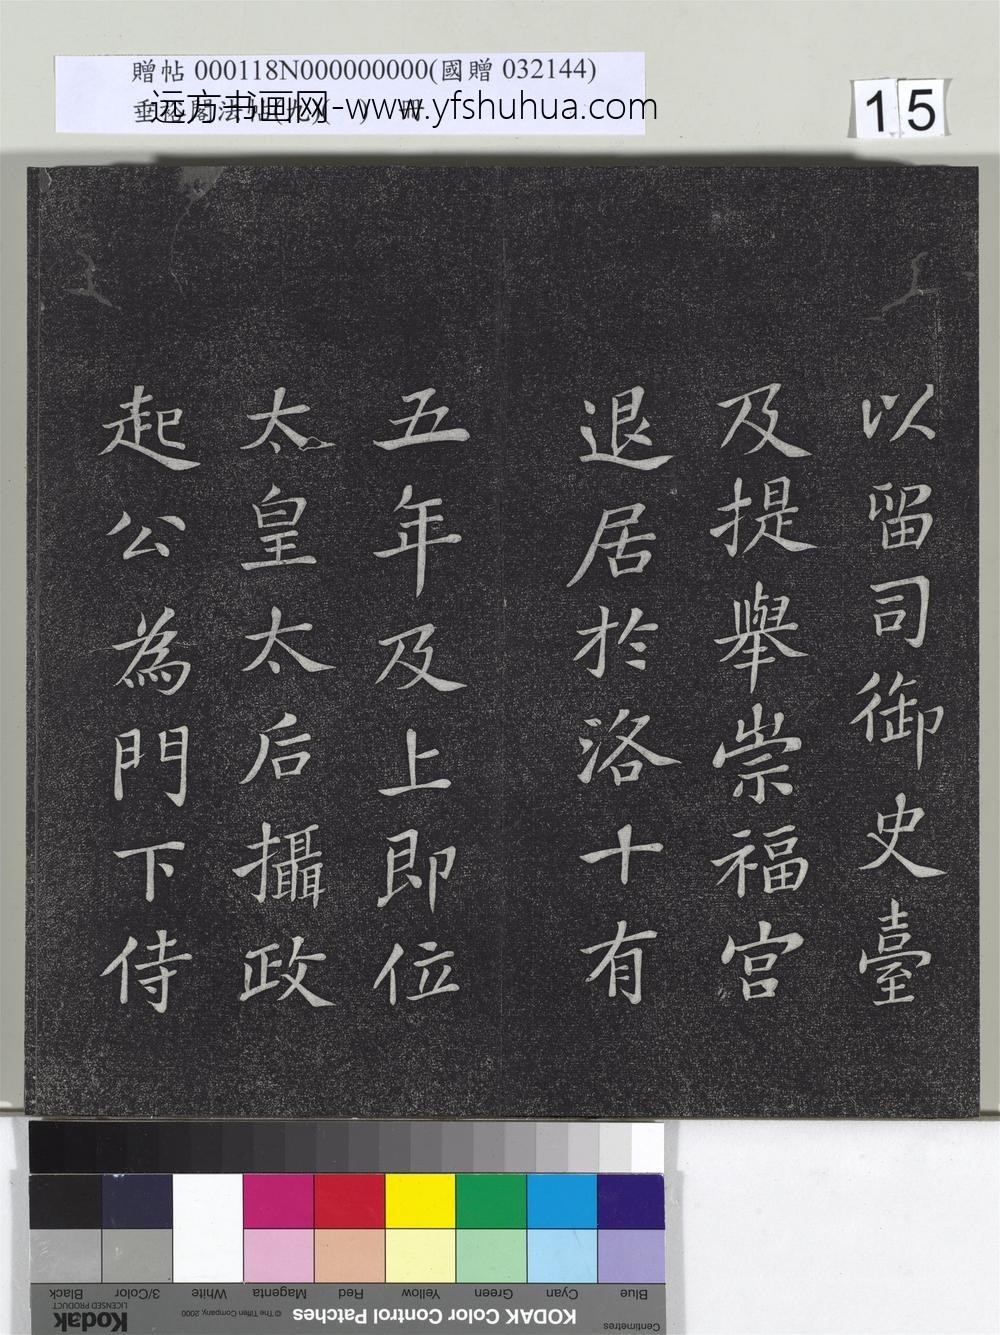 贈帖 000118N000000000(國贈 032144)
远方书画网-www.yfshuhua.com
15
以留司御史臺
及提舉崇福宮
退居於洛十有
五年及上即位
太皇太后攝政
起公為門下侍
Black
3/Color
White
Magenta
Red
Yellow
Green
Cyan
Blue
Kodak
LICENSED PRODUCT
© The Tiffen Company, 2000
KODAK Color Control Patches
Centimetres